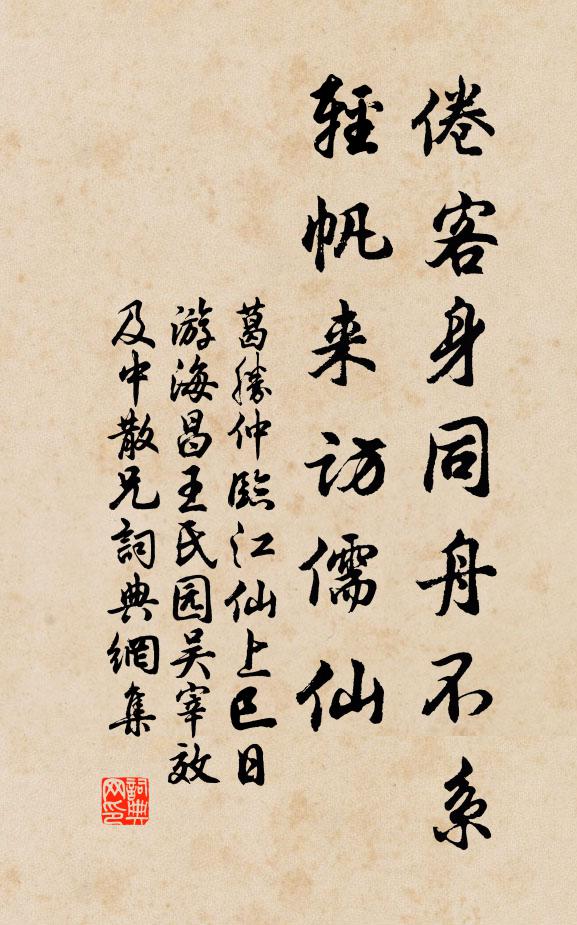 倦客身同舟不系
輕帆来访儒仙
葛勝仲臨江仙上巳日
游海昌王氏园吴宰效
及中散兄詞典網集
詞典
网印